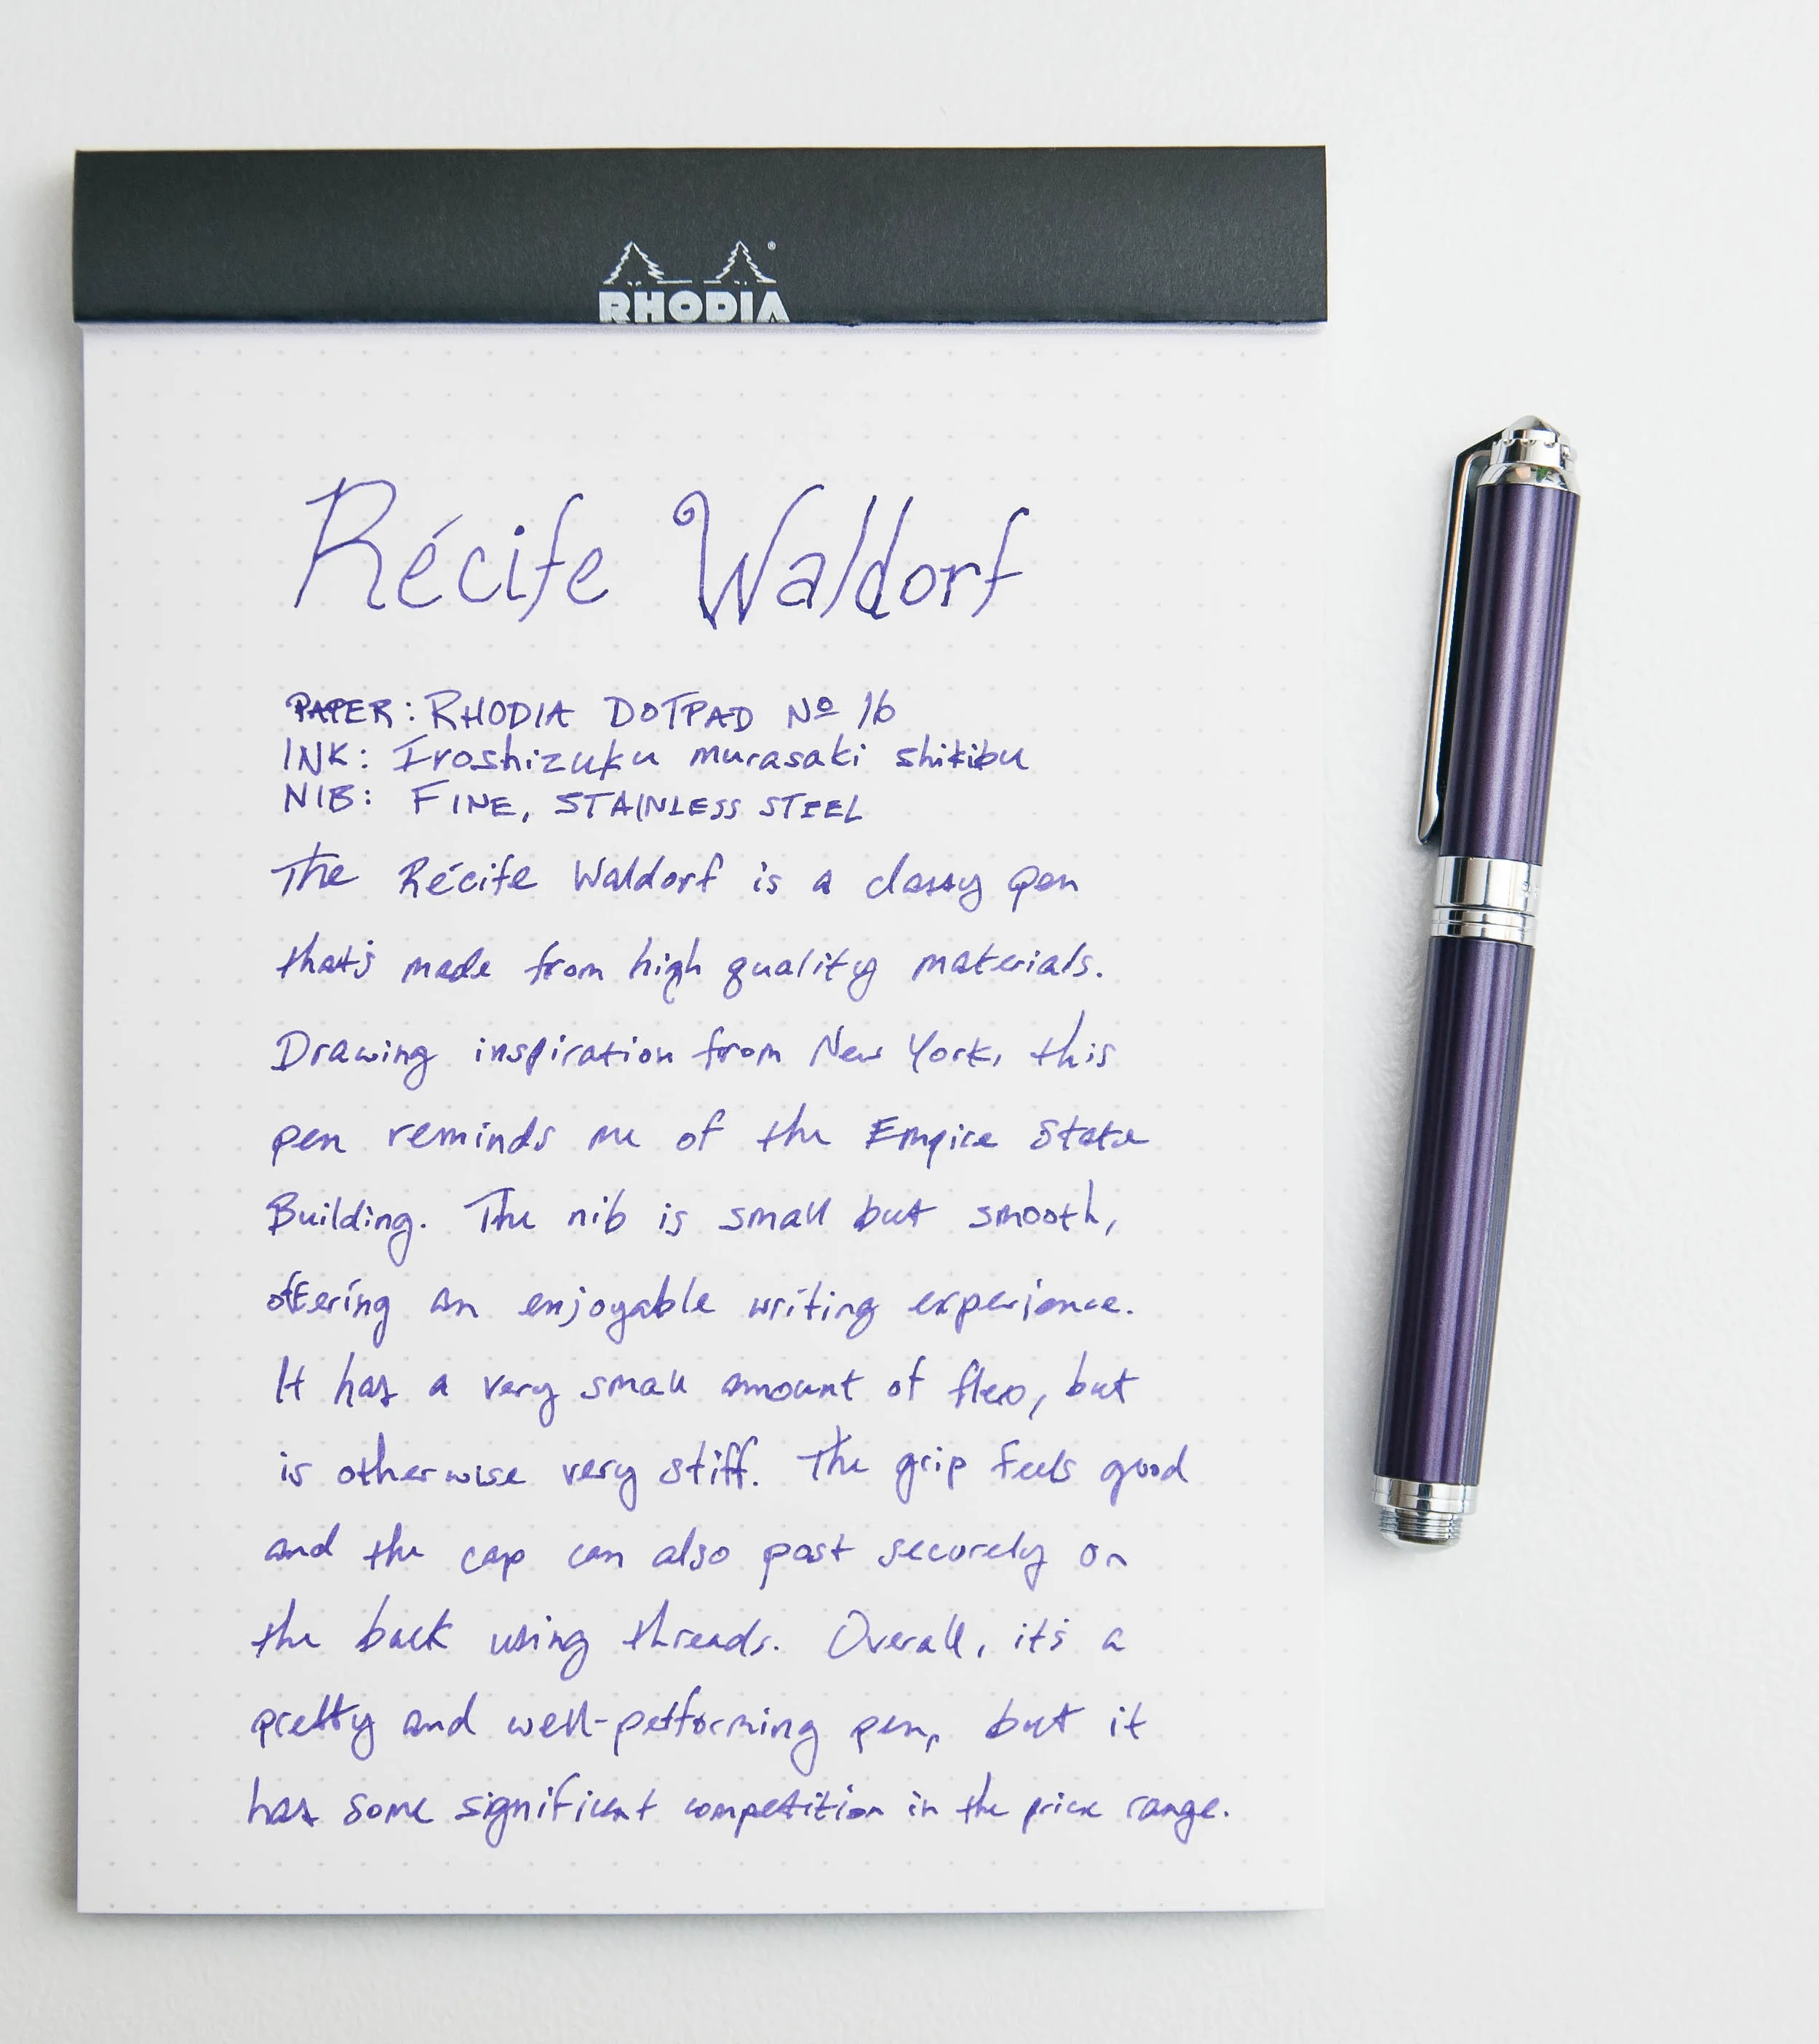 RHODIA
Récife Waldorf
PAPER: RHODIA DOTPAD Nº 16
INK: Iroshizuku murasaki shikibu
NIB: FINE, STAINLESS STEEL
The Récife Waldorf is a classy pen
that's made from high quality materials.
Drawing inspiration from New York, this
pen reminds me of the Empire State
Building. The nib is small but smooth,
offering an enjoyable writing experience.
It has a very small amount of flex, but
is otherwise very stiff. The grip feels good
and the cap can also post securely on
the back using threads. Overall, it's a
pretty and well-performing pen, but it
has some significant competition in the price range.